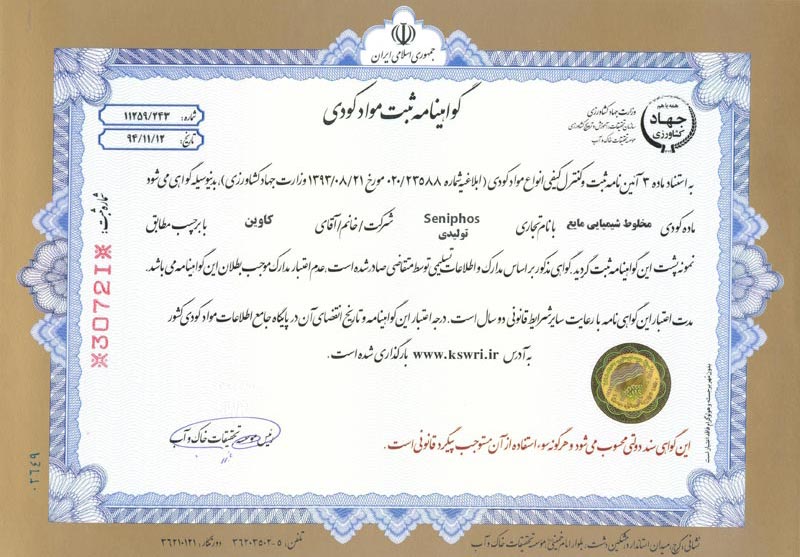 جمهوری اسلامی ایران
گواهینامه ثبت مواد کودی
شماره: ۱۱۲۵۹/۲۴۳
تاریخ: ۹۴/۱۱/۱۲
همه با هم
جهاد
کشاورزی
وزارت جهاد کشاورزی
سازمان تحقیقات، آموزش و ترویج کشاورزی
موسسه تحقیقات خاک و آب
به استناد ماده ۳ آئین نامه ثبت و کنترل کیفی انواع مواد کودی (ابلاغیه شماره ۰۲۰/۲۳۵۸۸ مورخ ۱۳۹۳/۰۸/۲۱ وزارت جهاد کشاورزی)، بدینوسیله گواهی می شود
ماده کودی مخلوط شیمیایی مایع با نام تجاری Seniphos تولیدی شرکت / خانم / آقای کاوین با برچسب مطابق
نمونه پشت این گواهینامه ثبت گردید. گواهی مذکور براساس مدارک و اطلاعات تسلیمی توسط متقاضی صادر شده است، عدم اعتبار مدارک موجب بطلان این گواهینامه می باشد.
مدت اعتبار این گواهی نامه با رعایت سایر شرایط قانونی دو سال است. درجه اعتبار این گواهینامه و تاریخ انقضای آن در پایگاه جامع اطلاعات مواد کودی کشور
به آدرس www.kswri.ir بارگذاری شده است.
شماره ثبت:
※30721※
رئیس موسسه تحقیقات خاک و آب
بدون مهر برجسته و هولوگرام فاقد اعتبار است
این گواهی سند دولتی محسوب می شود و هرگونه سوء استفاده از آن مستوجب پیگرد قانونی است.
۰۲۶۴۹
نشانی: کرج، میدان استاندارد، مشکین دشت، بلوار امام خمینی، موسسه تحقیقات خاک و آب
تلفن: ۵-۳۶۲۰۳۵۰۲ دورنگار: ۳۶۲۱۰۱۲۱